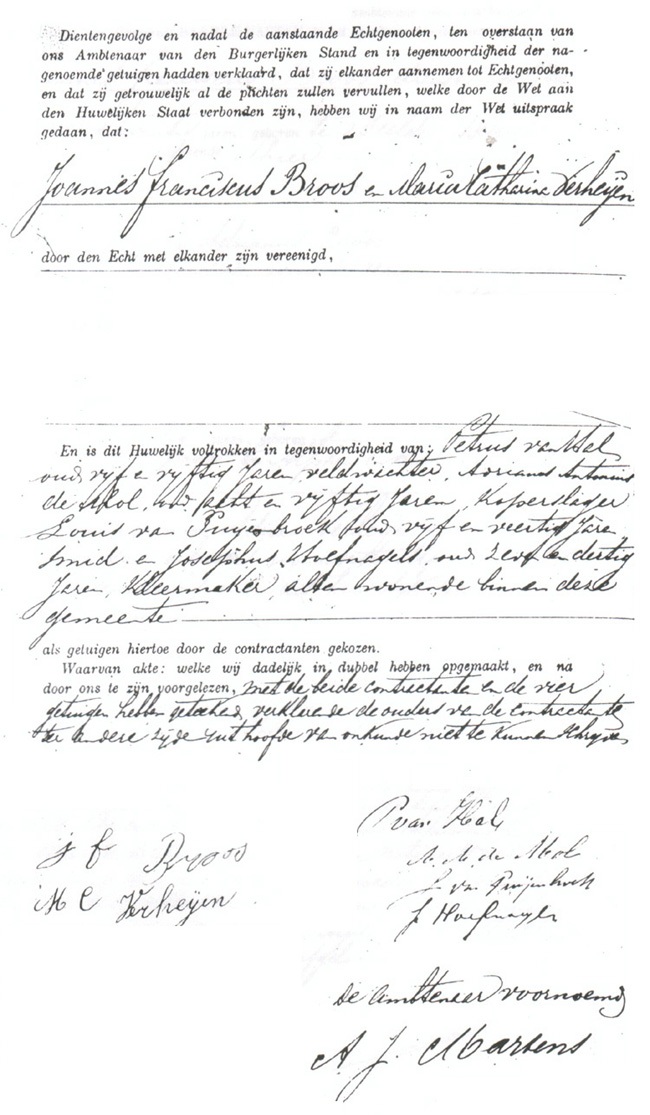 Dientengevolge en nadat de aanstaande Echtgenooten, ten overstaan van
ons Ambtenaar van den Burgerlijken Stand en in tegenwoordigheid der na-
genoemde getuigen hadden verklaard, dat zij elkander aannemen tot Echtgenooten,
en dat zij getrouwelijk al de plichten zullen vervullen, welke door de Wet aan
den Huwelijken Staat verbonden zijn, hebben wij in naam der Wet uitspraak
gedaan, dat:
Joannes Franciscus Broos en Maria Catharina Verheijen
door den Echt met elkander zijn vereenigd,
En is dit Huwelijk voltrokken in tegenwoordigheid van: Petrus van Hal
oud vijf en vijftig Jaren veldwachter, Adrianus Antonius
de Mol, oud acht en vijftig Jaren, Koperslager
Louis van Puijenbroek oud vijf en veertig Jaren
smid en Josephus Hoefnagels, oud zeven en dertig
Jaren, Kleermaker, allen wonende binnen deze
gemeente
als getuigen hiertoe door de contractanten gekozen.
Waarvan akte: welke wij dadelijk in dubbel hebben opgemaakt, en na
door ons te zijn voorgelezen, met de beide contractanten en de vier
getuigen hebben geteekend, verklarende de ouders van de contractante
ter andere zijde uit hoofde van onkunde niet te kunnen schrijven
J F Broos
M C Verheijen
P van Hal
A. A. de Mol
L van Puijenbroek
J Hoefnagels
De Ambtenaar voornoemd
A J. Martens